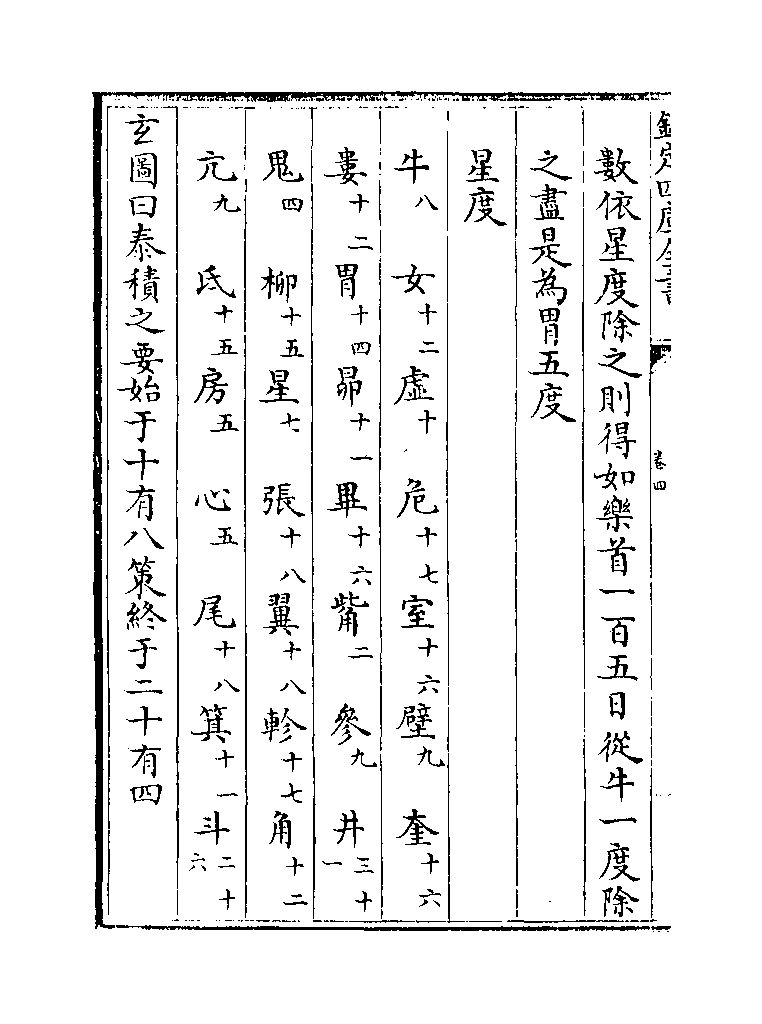 欽定四庫全書
卷四
數依星度除之則得如樂首一百五日從牛一度除
之盡是為胃五度
星度
牛八 女十二 虛十 危十七 室十六 壁九 奎十六
婁十二 胃十四 昴十一 畢十六 觜二 參九 井三十一
鬼四 柳十五 星七 張十八 翼十八 軫十七 角十二
亢九 氐十五 房五 心五 尾十八 箕十一 斗二十六
玄圖曰泰積之要始于十有八策終于二十有四